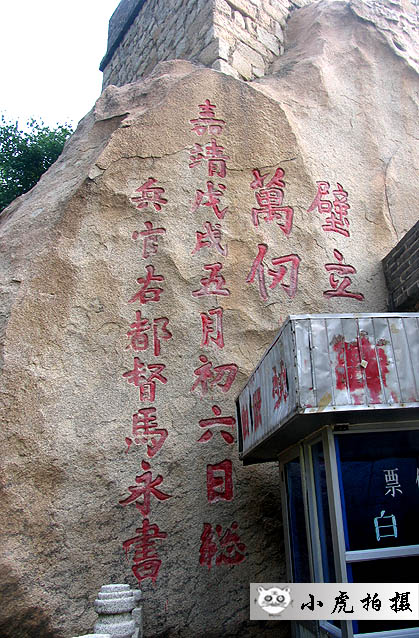 壁立
萬仞
嘉靖戊戌五月初六日總
兵官右都督馬永書
票
白
小虎拍摄